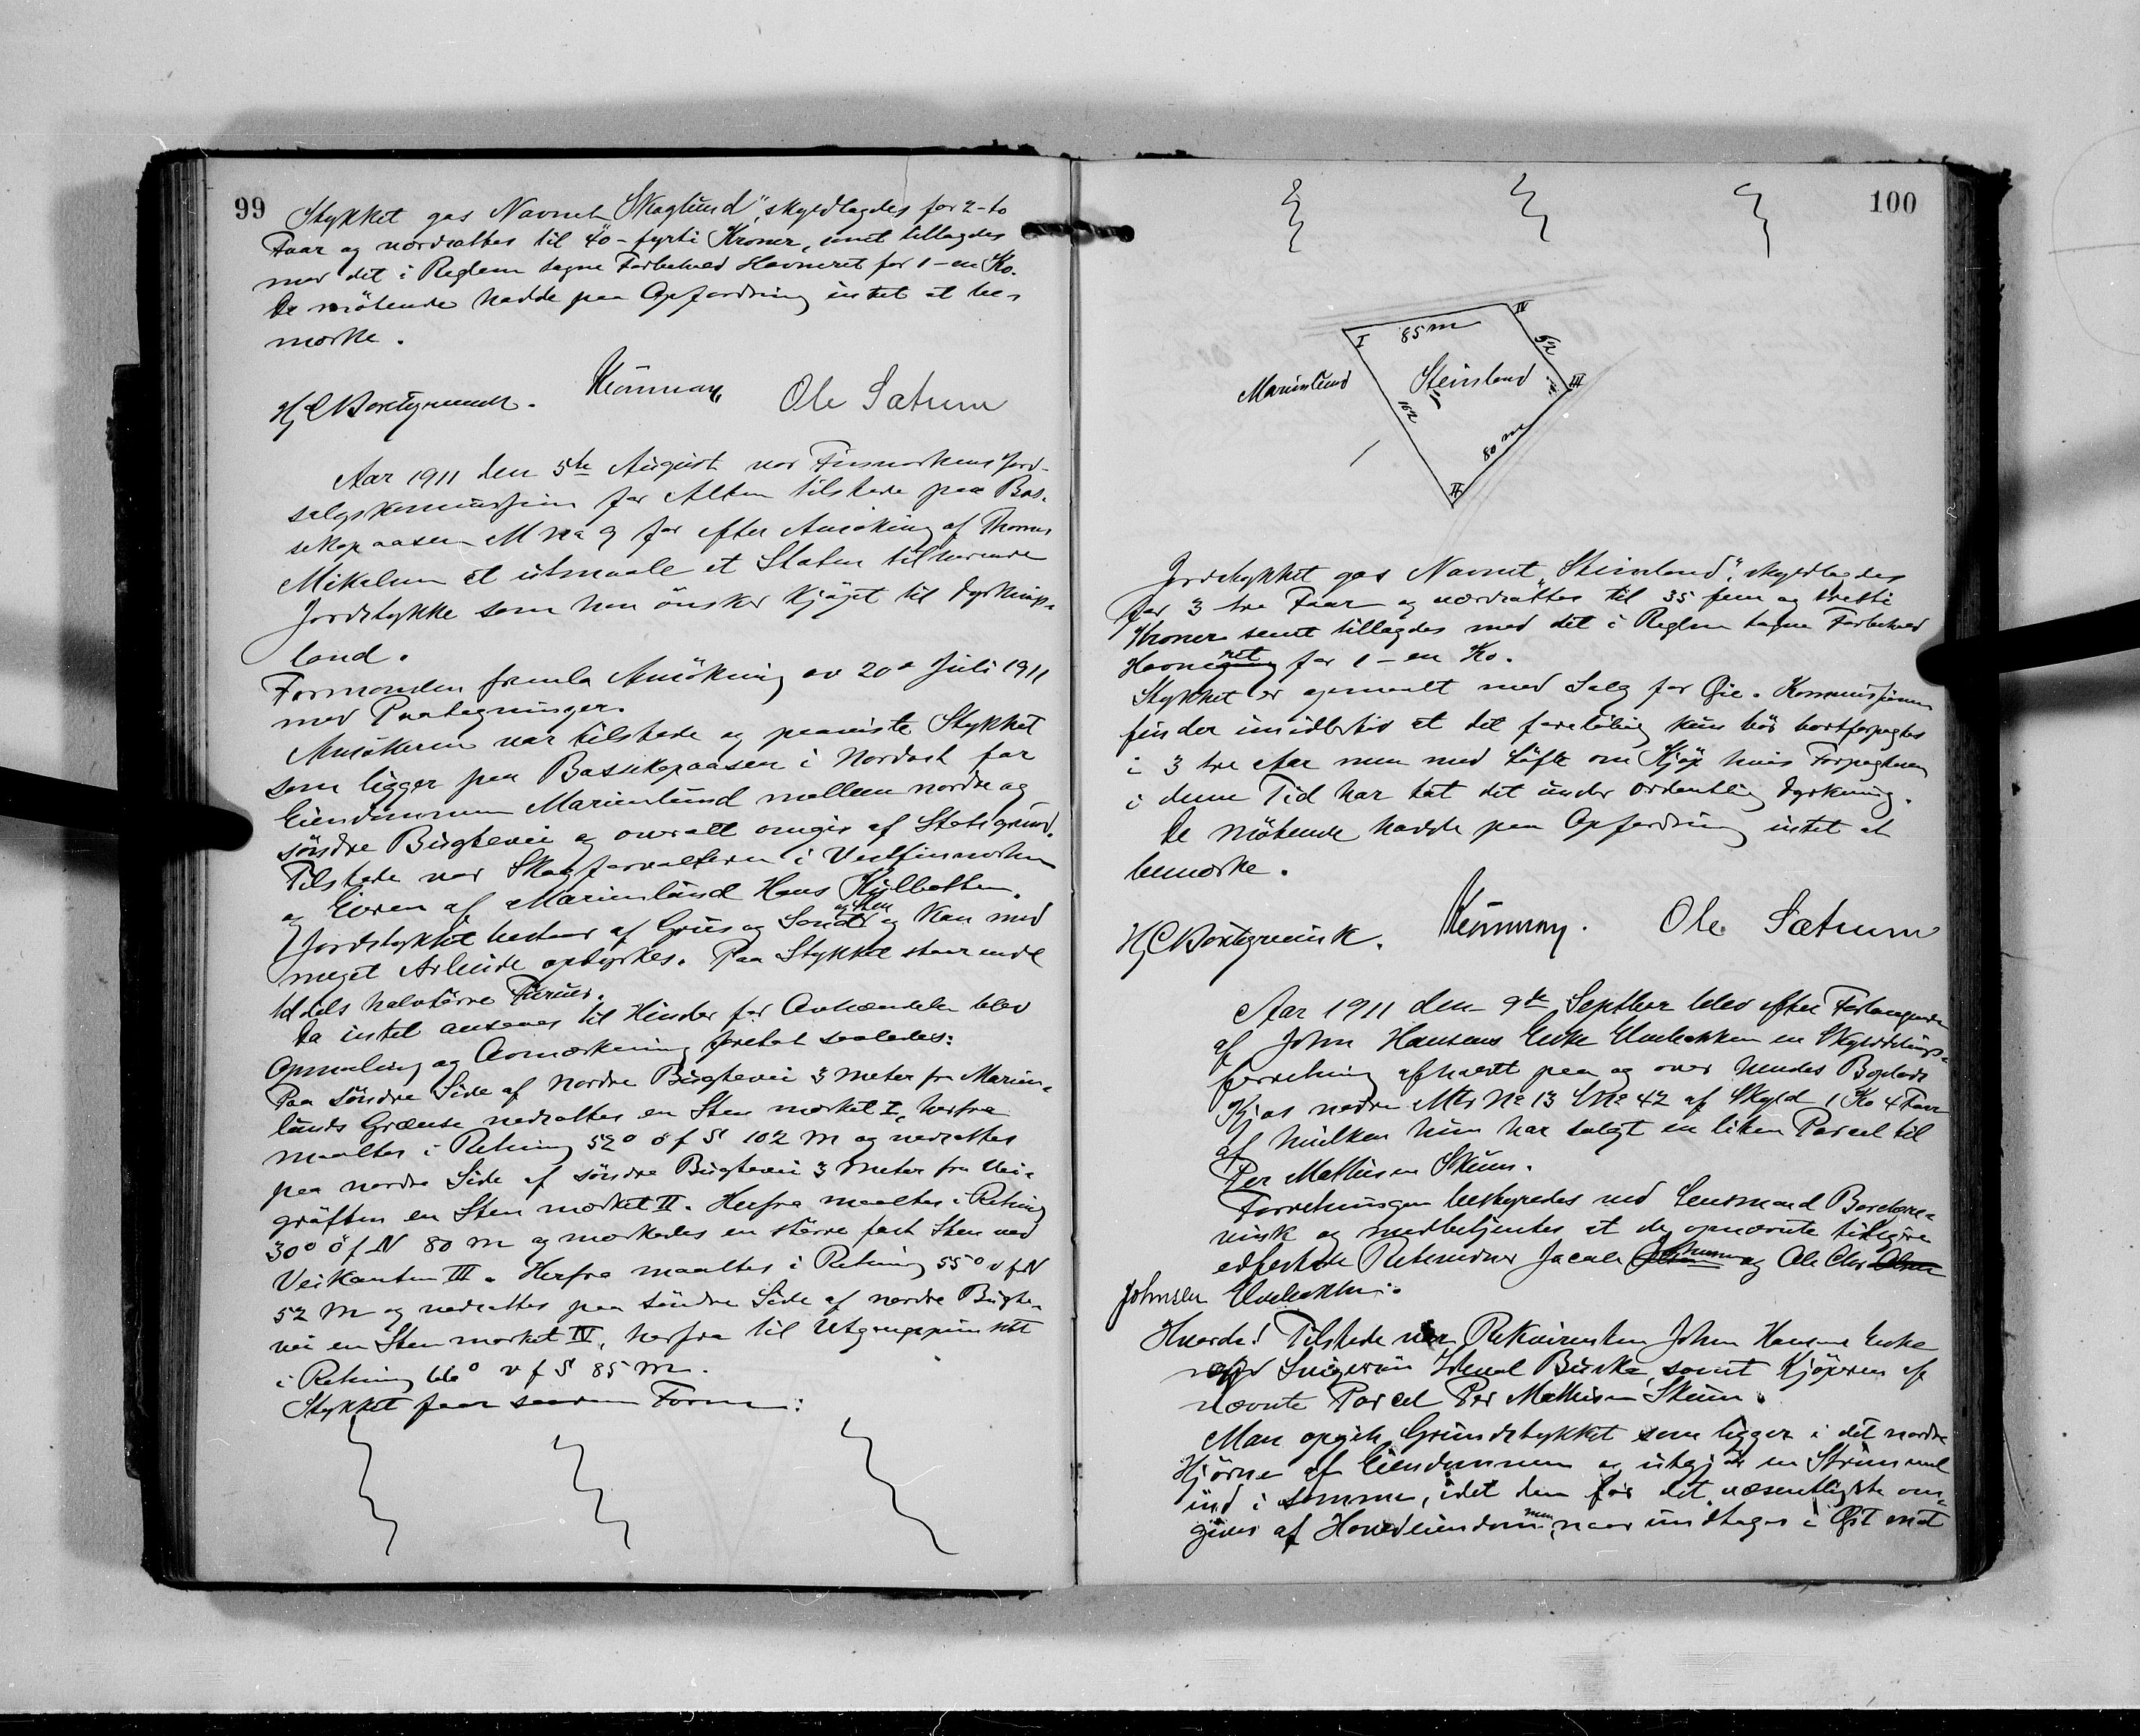 99
Stykket gas Navnet "Skoglund", skyldlagdes for 2-to
Faar og værdsattes til 40-fyrti Kroner, samt tillagdes
med det i Reglen tagne Forbehold Havneret for 1-en Ko.
De mötende hadde paa Opfordring intet at be-
mærke.
Ole Sætrum
Aar 1911 den 5te August var Finmarkens Jord-
salgskommission for Alten tilstede paa Bos-
sekopaasen M No 9 for efter Ansökning af Thomas
Mikalsen at utmaale et Staten tilhörende
Jordstykke som han önsker kjöpt til Dyrknings-
land.
Formanden fremla Ansökning av 20de Juli 1911
med Paategninger.
Ansökeren var tilstede og paaviste Stykket
som ligger paa Bossekopaasen i Nordost for
Eiendommen Marienlund mellem nordre og
söndre Bugtevei og overalt omgis af Statsgrund.
Tilstede var Skogforvalteren i Vestfinmarken
og Eieren af Marienlund Hans Kjelbotten.
Jordstykket bestaar af Grus og Sand og Sten og kan med
meget Arbeide opdyrkes. Paa Stykket staar endel
tildels halvtörre Furuer.
Da intet ansees til Hinder for Avhændelse blev
Opmaaling og Avmærkning foretat saaledes:
Paa söndre Side af nordre Bugtevei 3 Meter fra Marien-
lunds Grænse nedsattes en Sten mærket I, herfra
maaltes i Retning 52° ö f S 102 M og nedsattes
paa nordre Side af söndre Bugtevei 3 Meter fra Vei-
gröften en Sten mærket II. Herfra maaltes i Retning
30° ö f N 80 M og mærkedes en större fast Sten ved
Veikanten III. Herfra maaltes i Retning 55° v f N
52 M og nedsattes paa söndre Side af nordre Bugte-
vei en Sten mærket IV, herfra til Utgangspunktet
i Retning 66° v f S 85 M.
Stykket faar saadan Form:
100
I 85 m IV
52
Marienlund Steinland III
102
80 m
II
Jordstykket gas Navnet "Steinland", skyldlagdes
for 3 tre Faar og værdsattes til 35 fem og tretti
Kroner samt tillagdes med det i Reglen tagne Forbehold
Havneret for 1-en Ko.
Stykket er anmeldt med Salg for Øie. Kommissionen
finder imidlertid at det foreløbig kun bör bortforpagtes
i 3 tre Aar men med Löfte om Kjöp hvis Forpagteren
i denne Tid har tat det under ordentlig Dyrkning.
De Mötende hadde paa Opfordring intet at
bemærke.
Ole Sætrum
Aar 1911 den 9de Septber blev efter Forlangende
af John Hansens Enke Elvebakken en Skylddelings-
forretning afholdt paa og over hendes Boplads
Kjos nedre Mts No 13 LNo 42 af Skyld 1 Ko 4 Faar
af hvilken hun har solgt en liten Parcel til
Per Mathisen Skum.
Forretningen bestyredes ved Lensmand Boretgre-
vink og medbetjentes at de opnævnte tidligere
edfæstede Retsmænd Jacob og Ole Chr
Johnsen Elvebakken.
Hvorda! Tilstede var Rekvirenten John Hansens Enke
samt Kjöperen af
nævnte Parcel Per Mathisen Skum.
Man opgik Grundstykket som ligger i det nordre
Hjörne af Eiendommen og utgjör en Strimmel
ind i samme, idet den for det væsentligste om-
gives af Hovedeiendommen, naar undtages i Øst mot